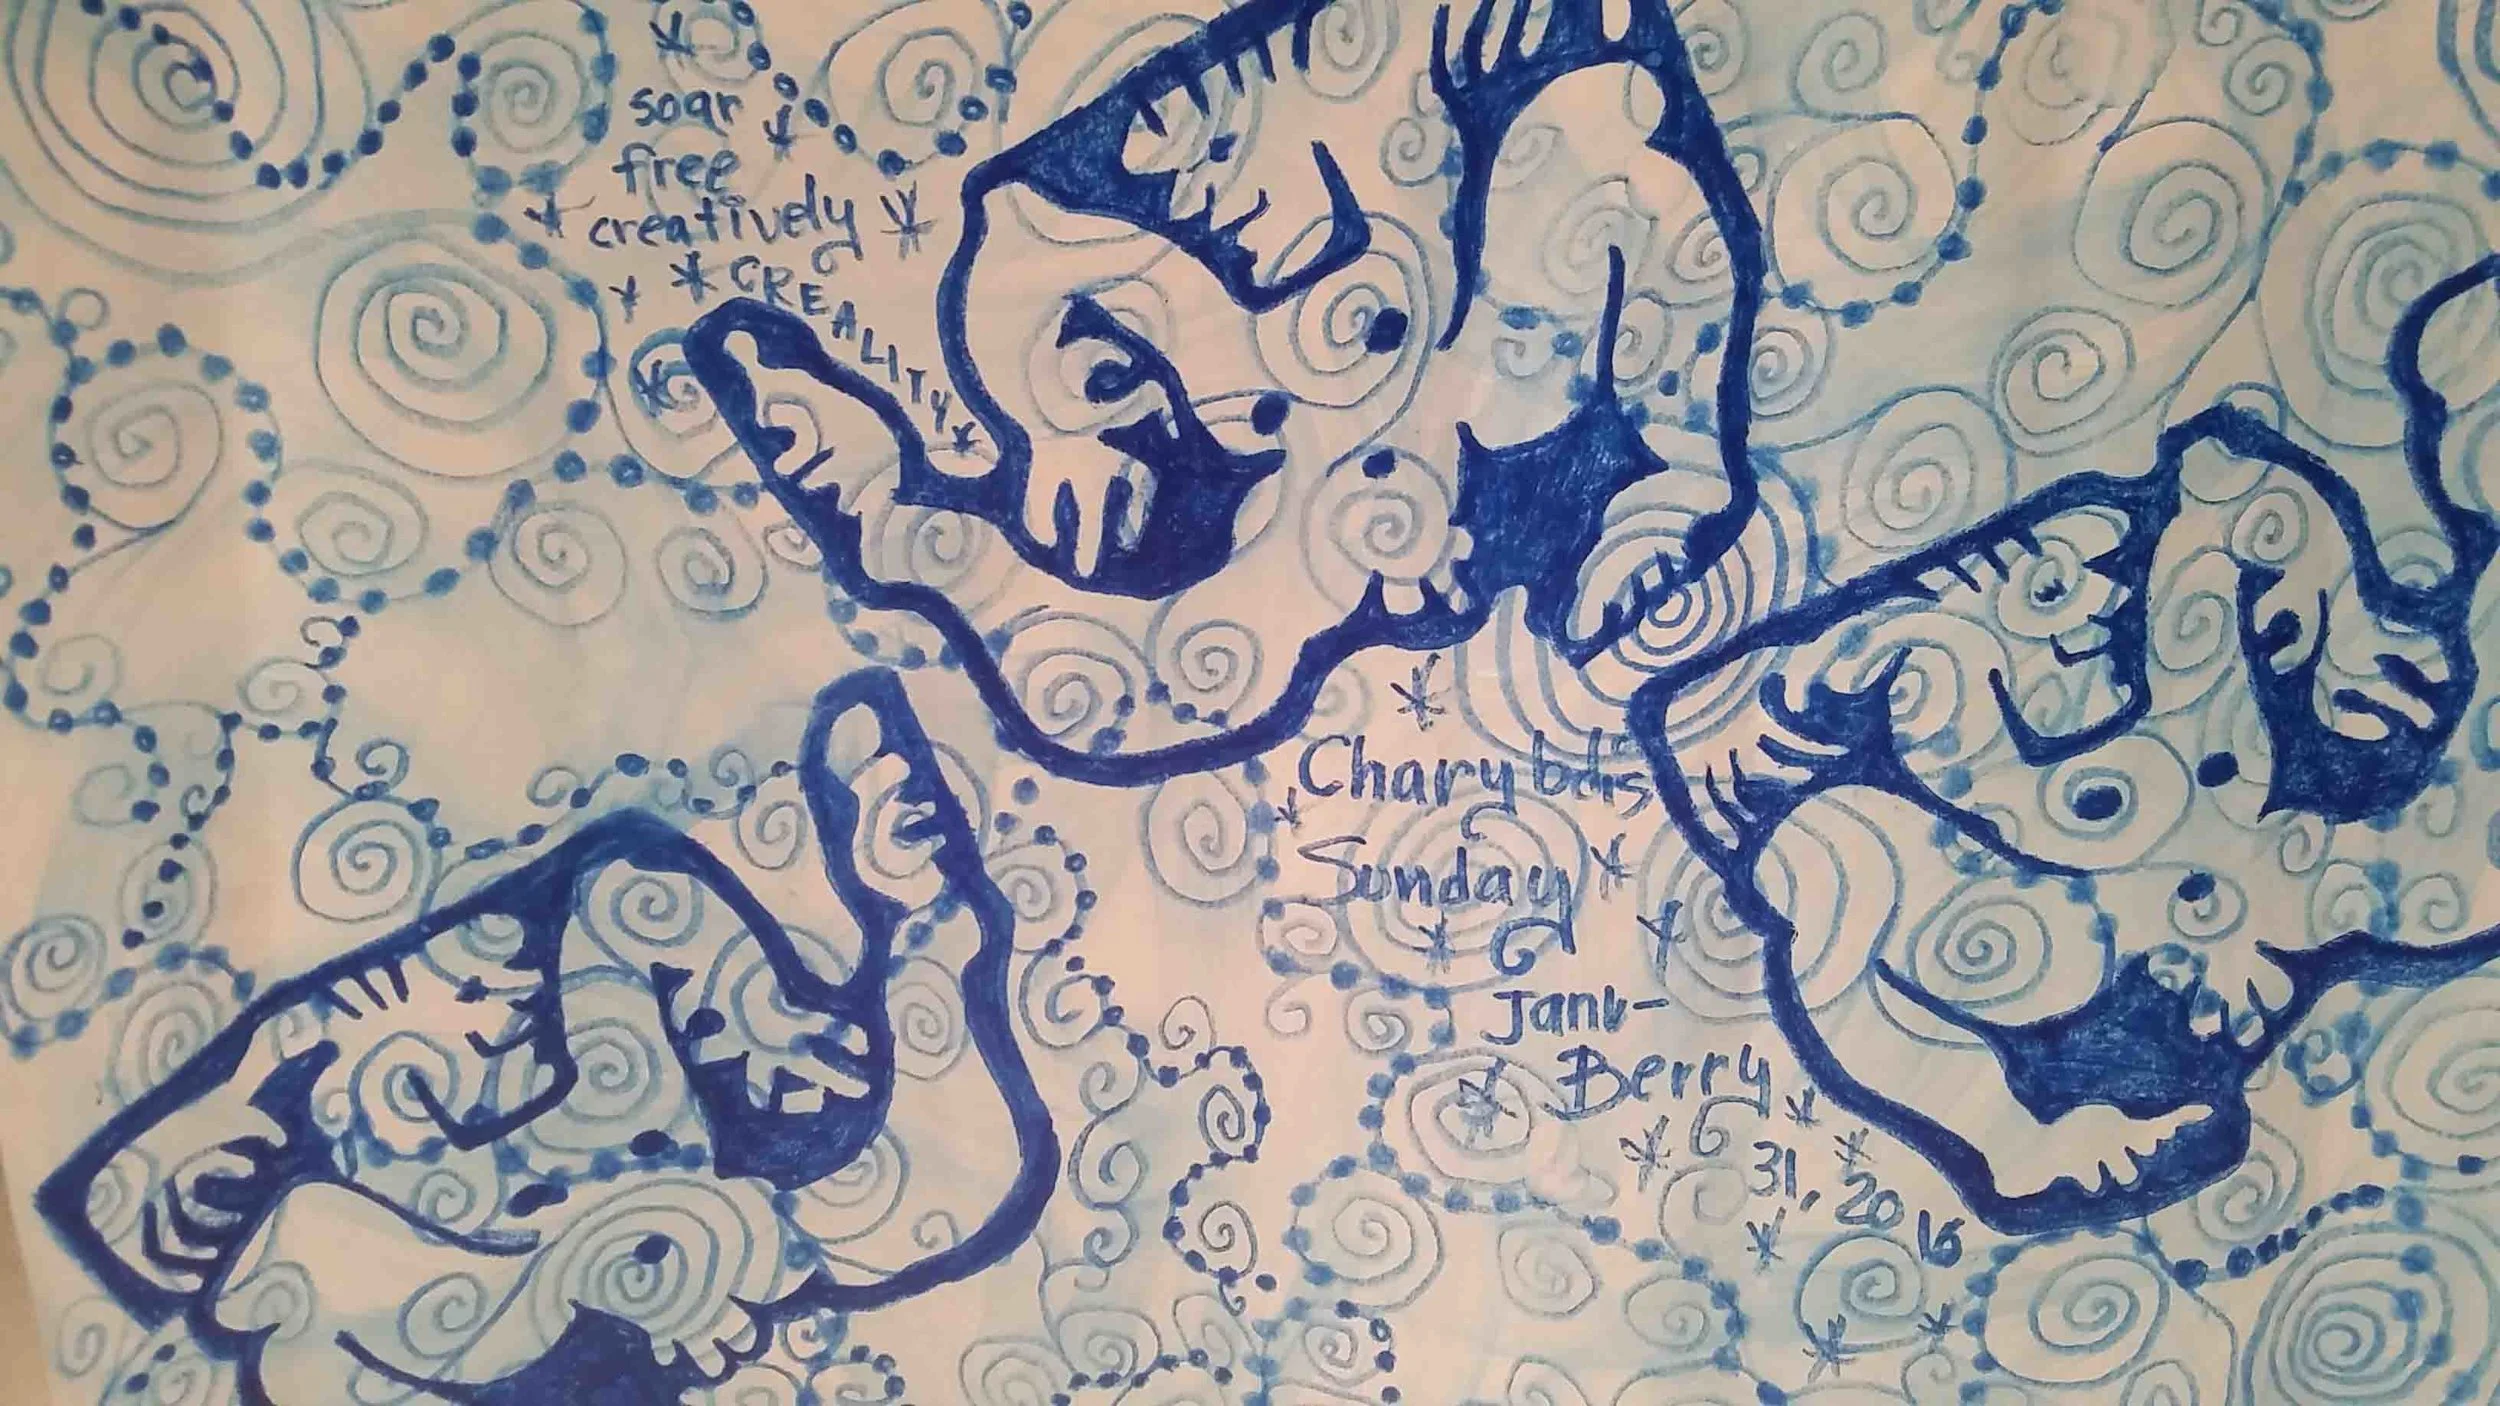 soar
free
creatively
CREALITY
Charybdis
Sunday
Janu-
Berry
31, 2016